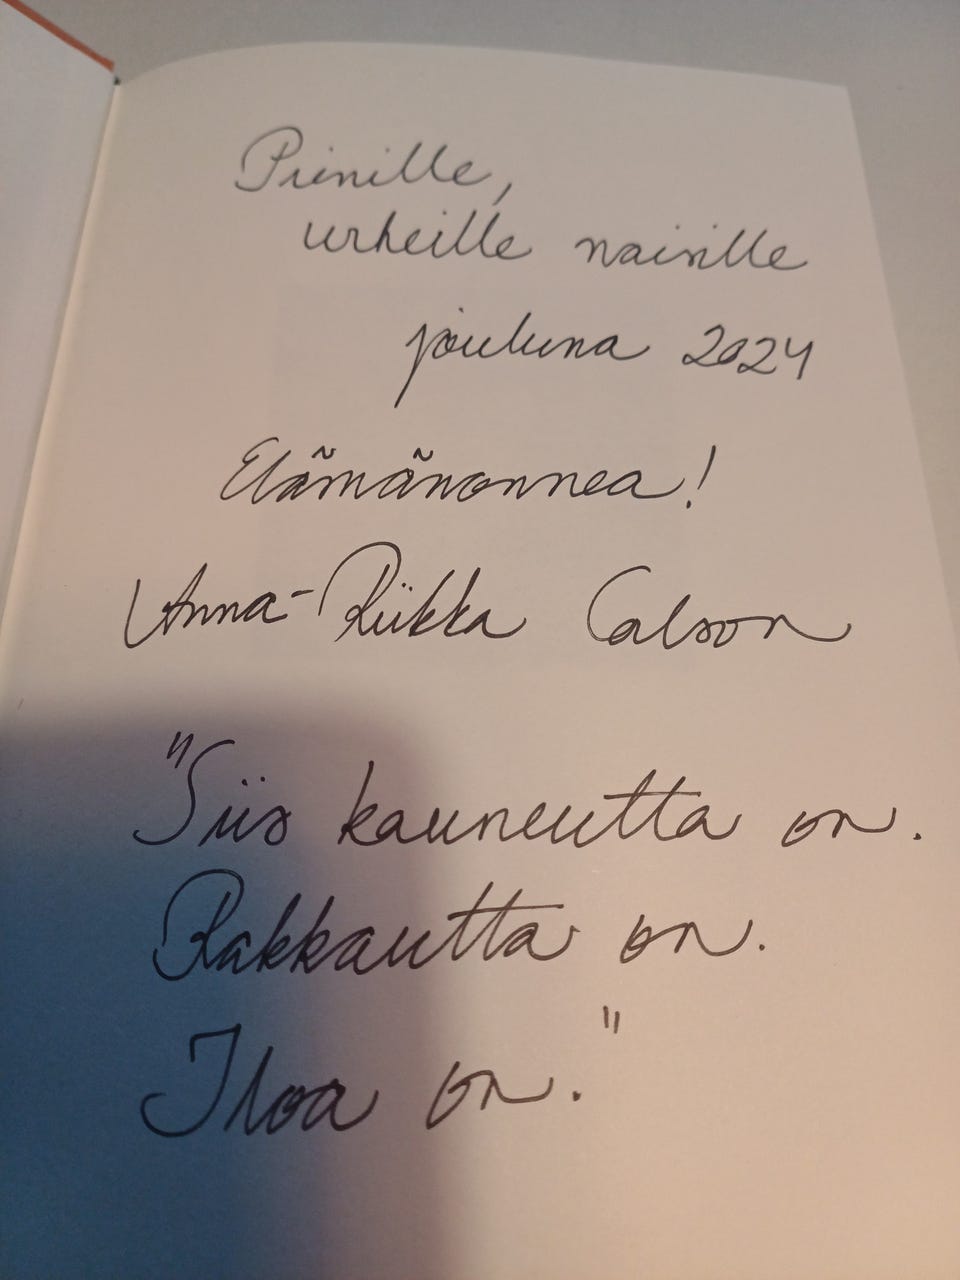 Pienille,
urheille naisille
jouluna 2024
Elämänonnea!
Anna-Riikka Carlson
"Siis kauneutta on.
Rakkautta on.
Iloa on."